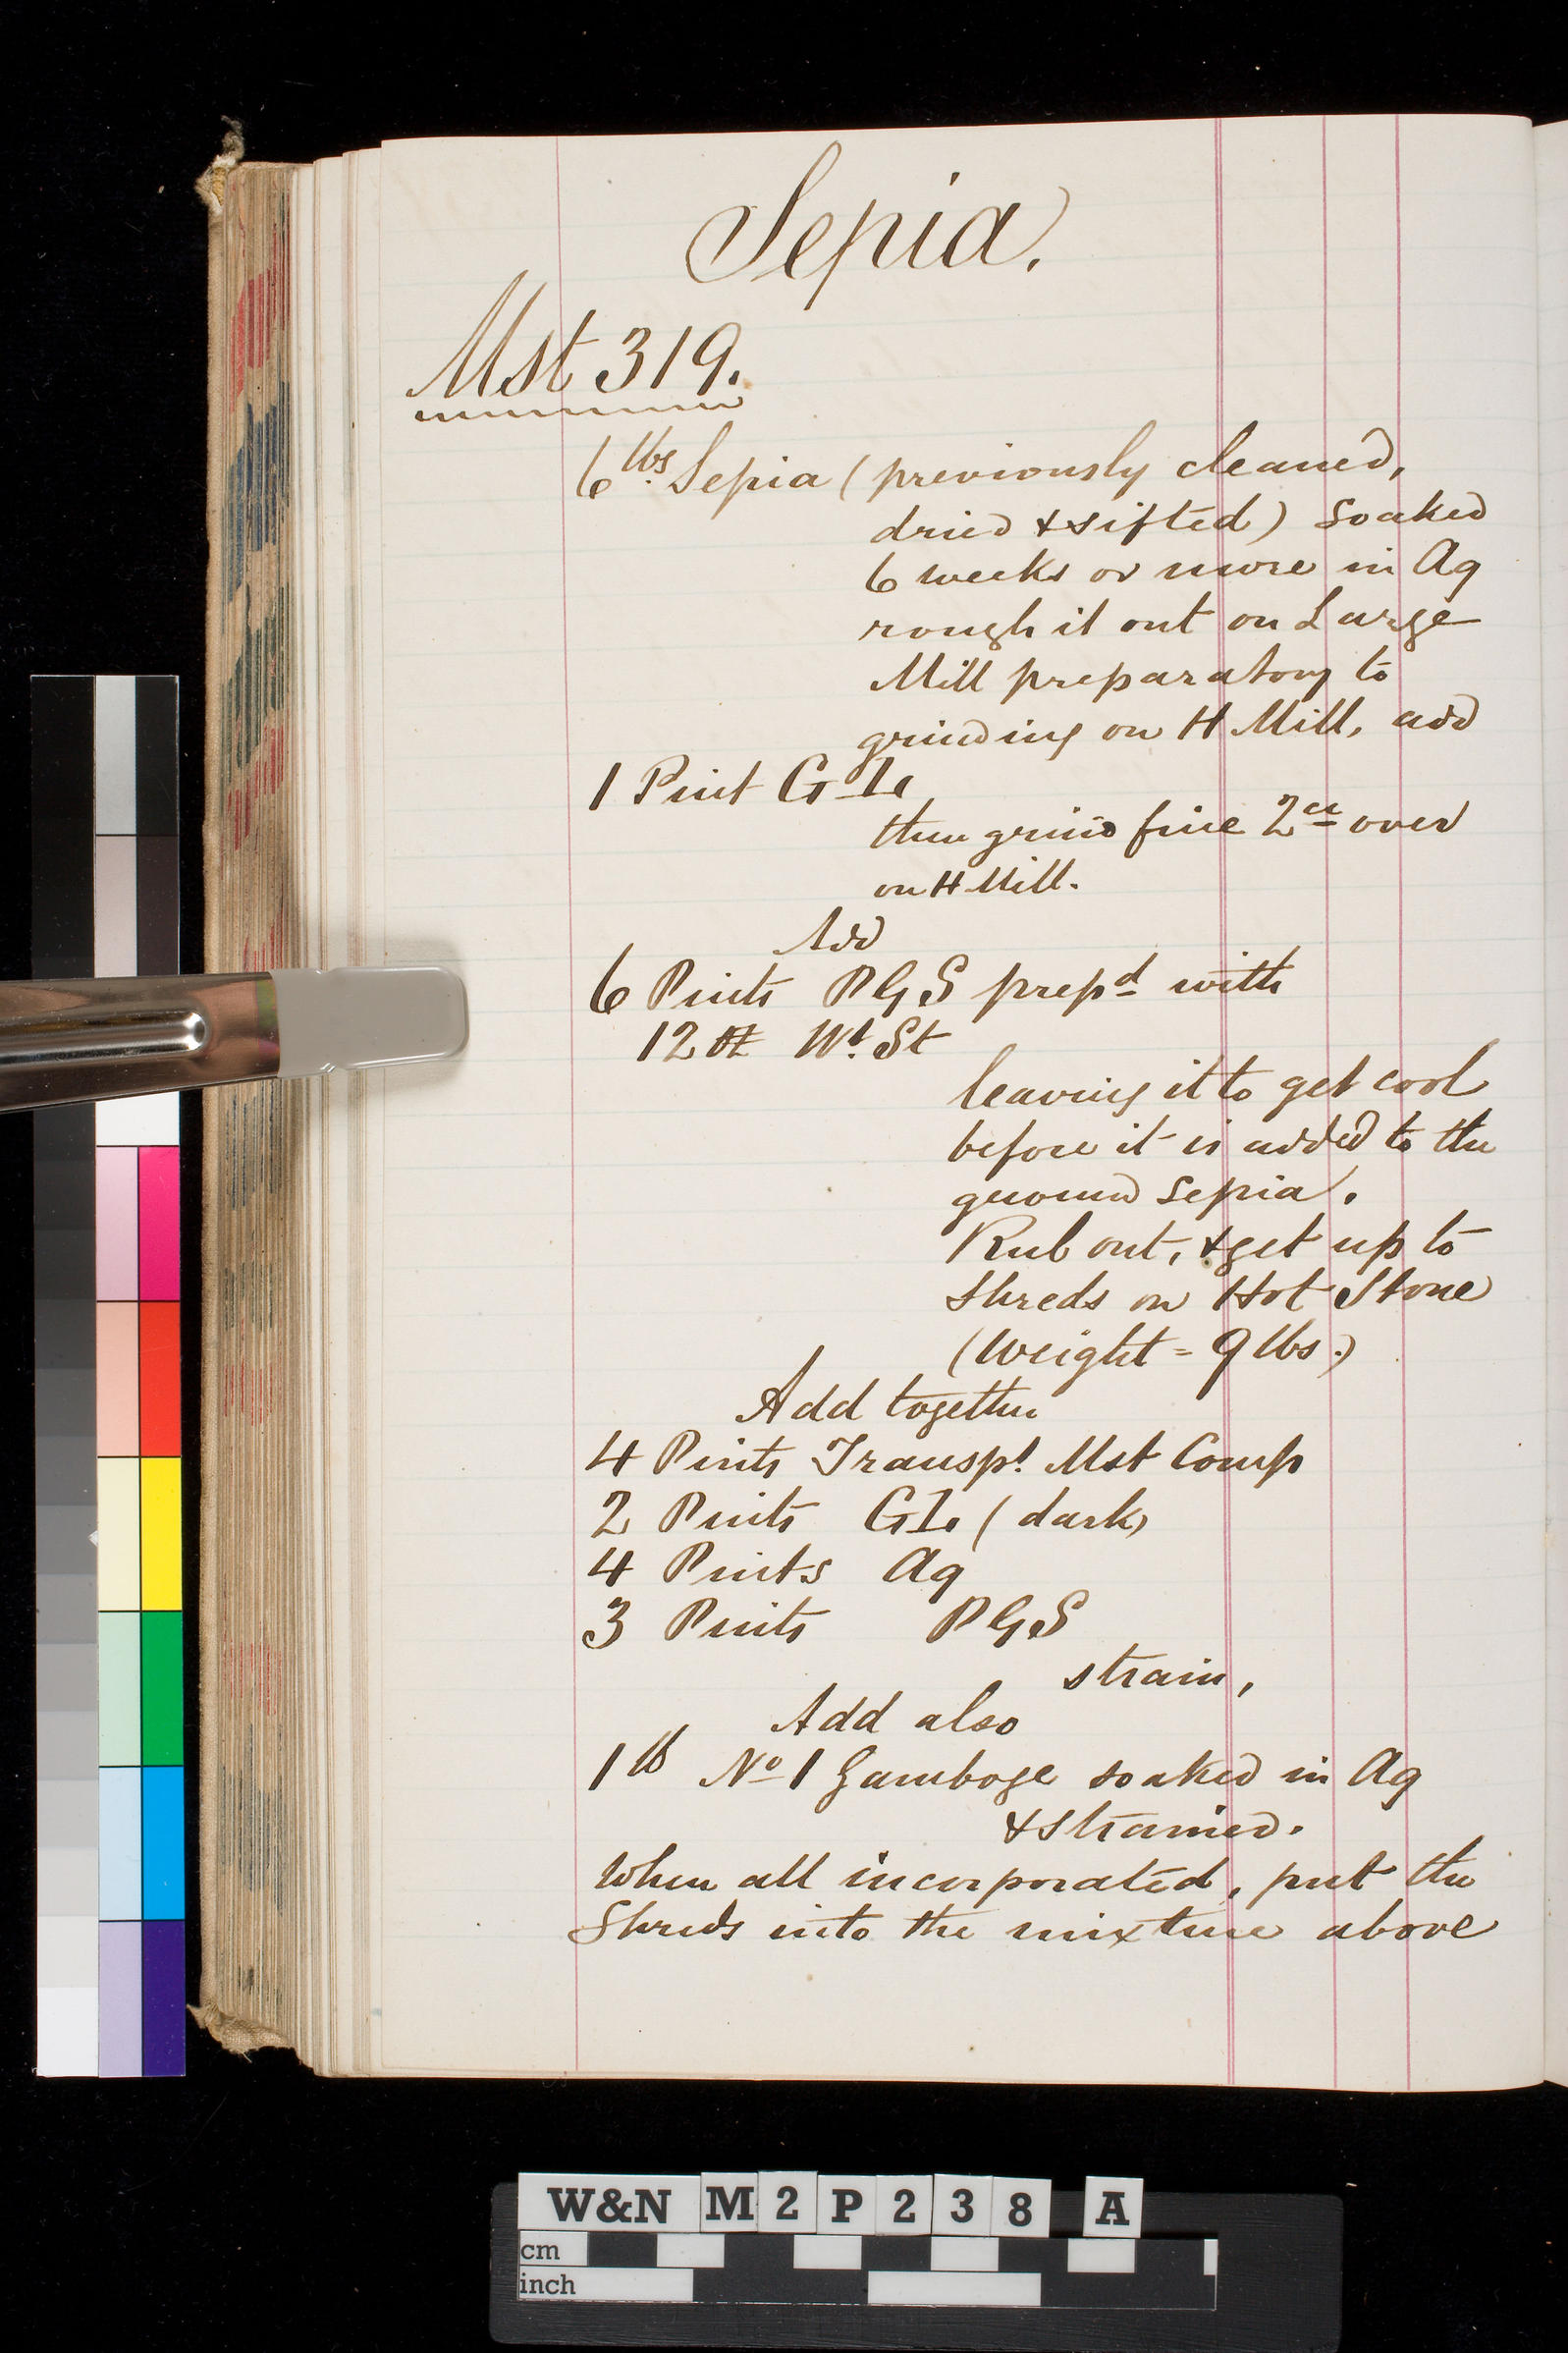 Sepia.
Mst 319.
6 lbs. Sepia (previously cleaned,
dried & sifted) soaked
6 weeks or more in Aq
rough it out on Large
Mill preparatory to
grinding on H Mill, add
1 Pint G L
then grind fine 2ce over
on H Mill.
Add
6 Pints P G S prepd with
12 oz Wt. St
leaving it to get cool
before it is added to the
ground Sepia.
Rub out, & get up to
shreds on Hot Stone
(Weight = 9 lbs.)
Add together
4 Pints Transpt. Mst Comp
2 Pints GL (dark)
4 Pints Aq
3 Pints P G S
strain,
Add also
1 lb No 1 Gamboge soaked in Aq
& strained.
When all incorporated, put the
Shreds into the mixture above
W&N M2P238 A
cm
inch